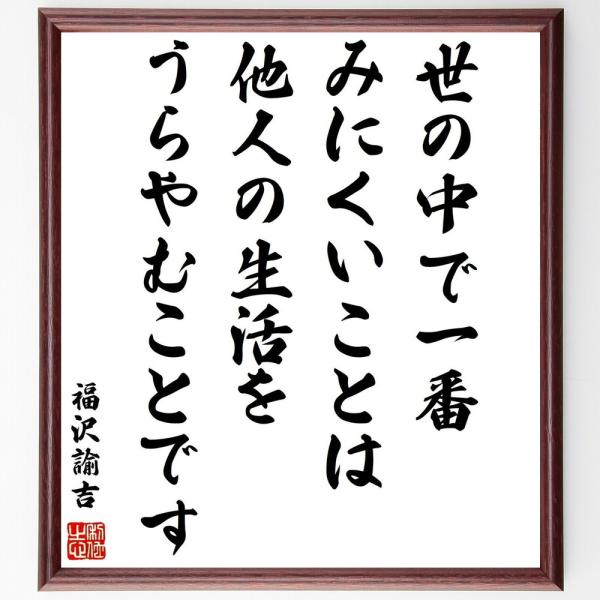 世の中で一番
みにくいことは
他人の生活を
うらやむことです
福沢諭吉